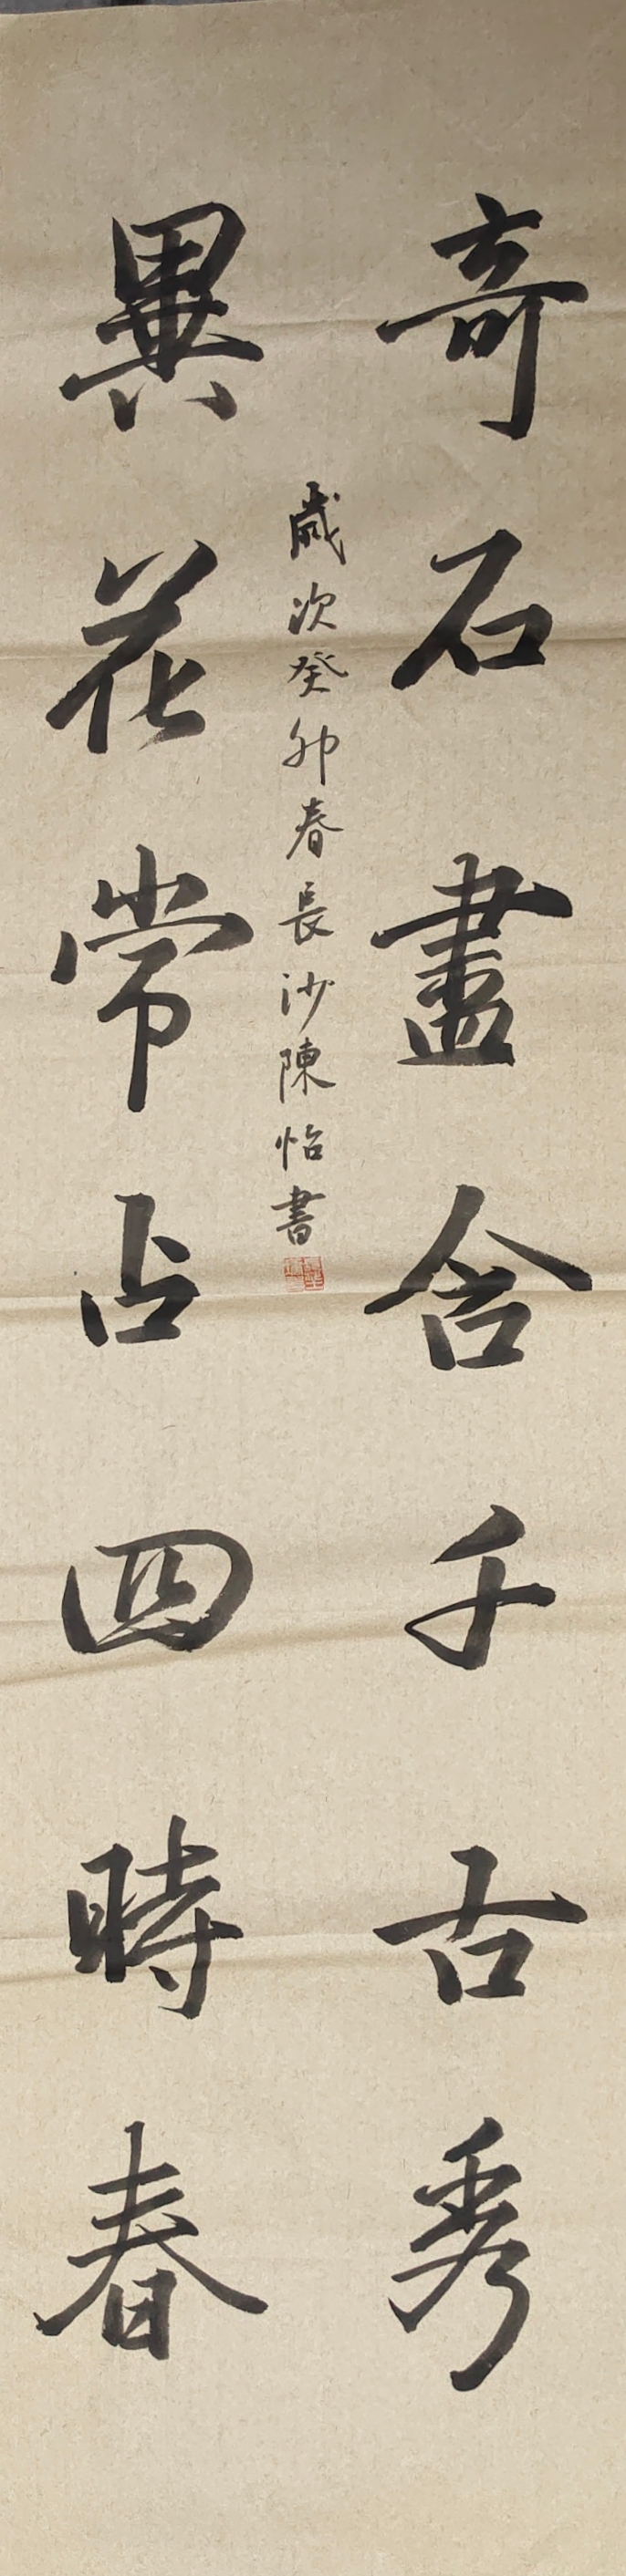 奇石盡含千古秀
異花常占四時春
歲次癸卯春長沙陳怡書